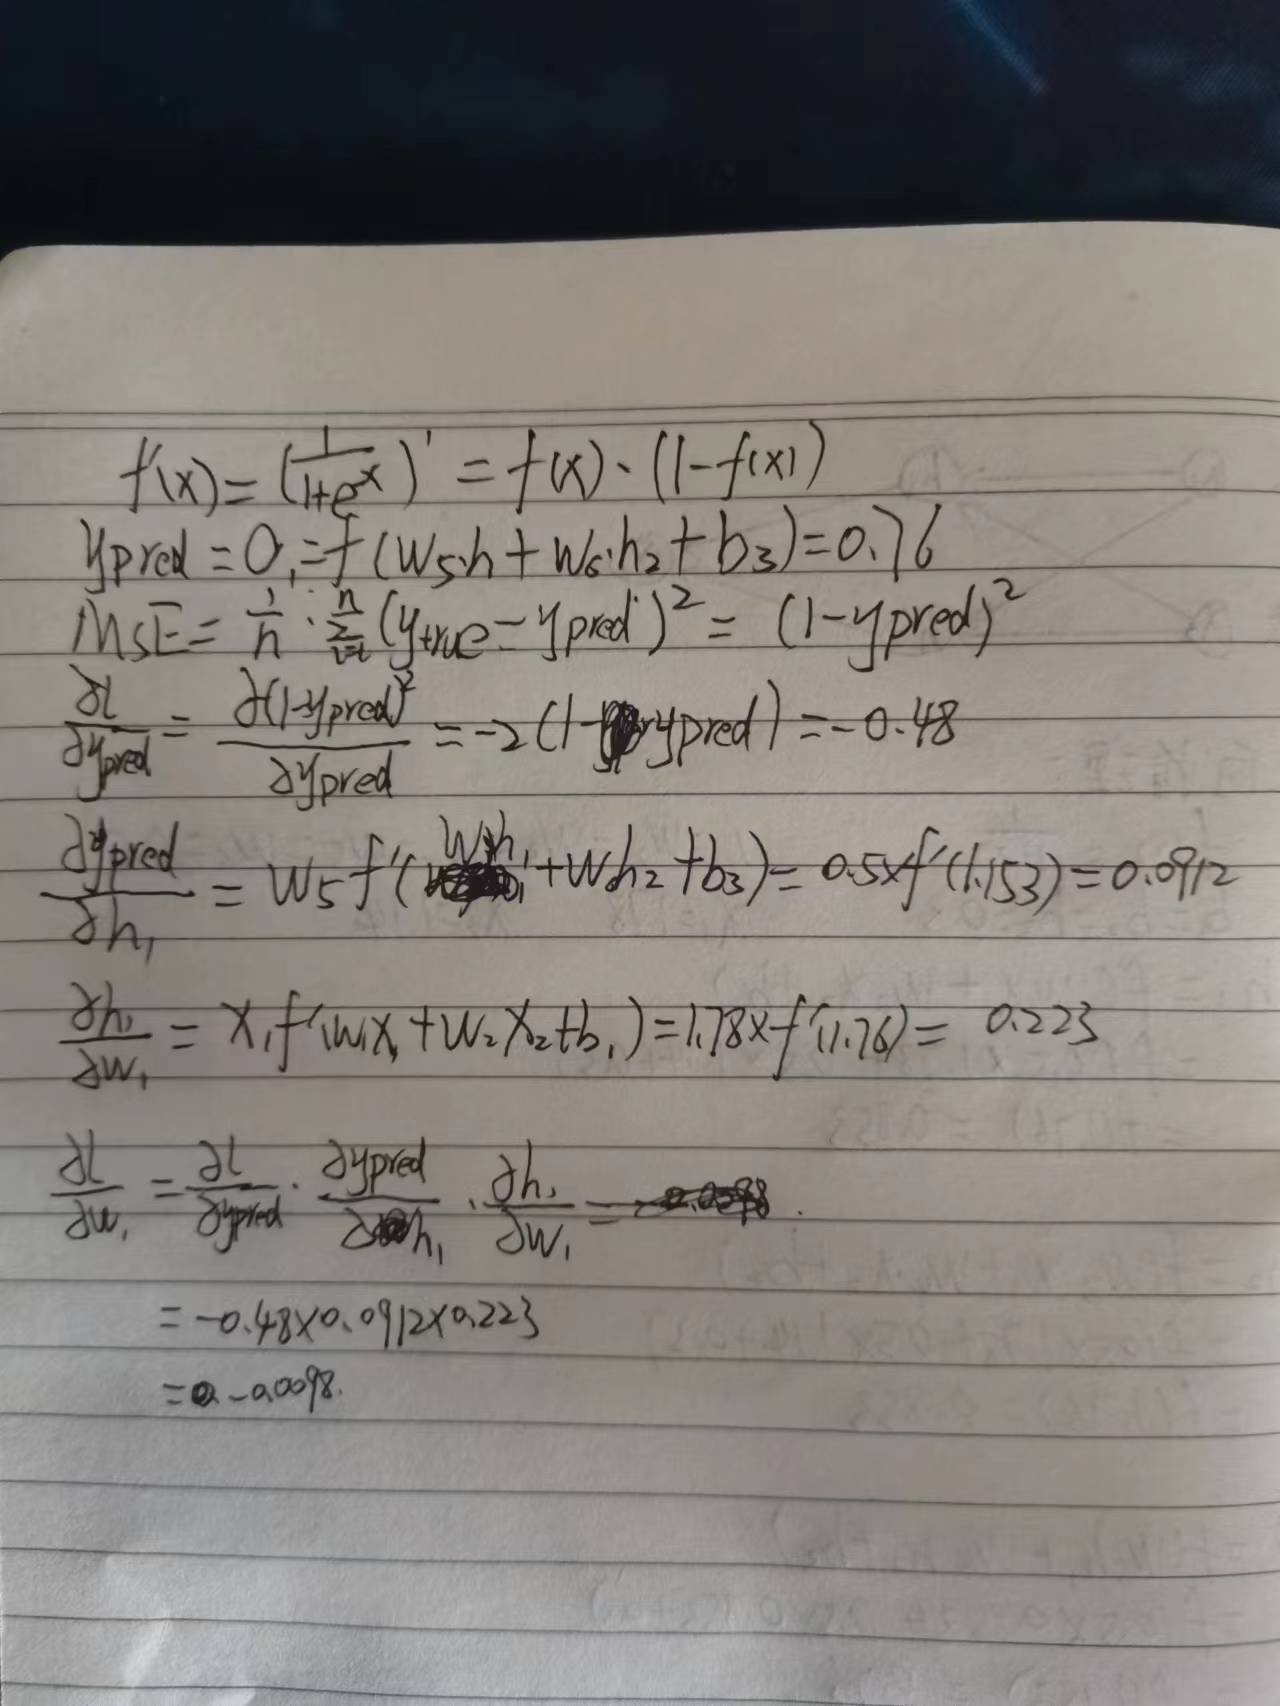 f'(x) = (1/(1+e^x))' = f(x)·(1-f(x))
ypred = O₁ = f(w₅·h + w₆·h₂ + b₃) = 0.76
MSE = 1/n · Σ_{i=1}^{n} (ytrue - ypred)² = (1-ypred)²
∂l/∂ypred = ∂(1-ypred)²/∂ypred = -2(1-ypred) = -0.48
∂ypred/∂h₁ = w₅f'(w₅h₁ + w₆h₂ + b₃) = 0.5×f'(1.153) = 0.0912
∂h₁/∂w₁ = x₁f'(w₁x₁ + w₂x₂ + b₁) = 1.78×f'(1.76) = 0.223
∂l/∂w₁ = ∂l/∂ypred · ∂ypred/∂h₁ · ∂h₁/∂w₁ =
= -0.48×0.0912×0.223
= -0.0098.